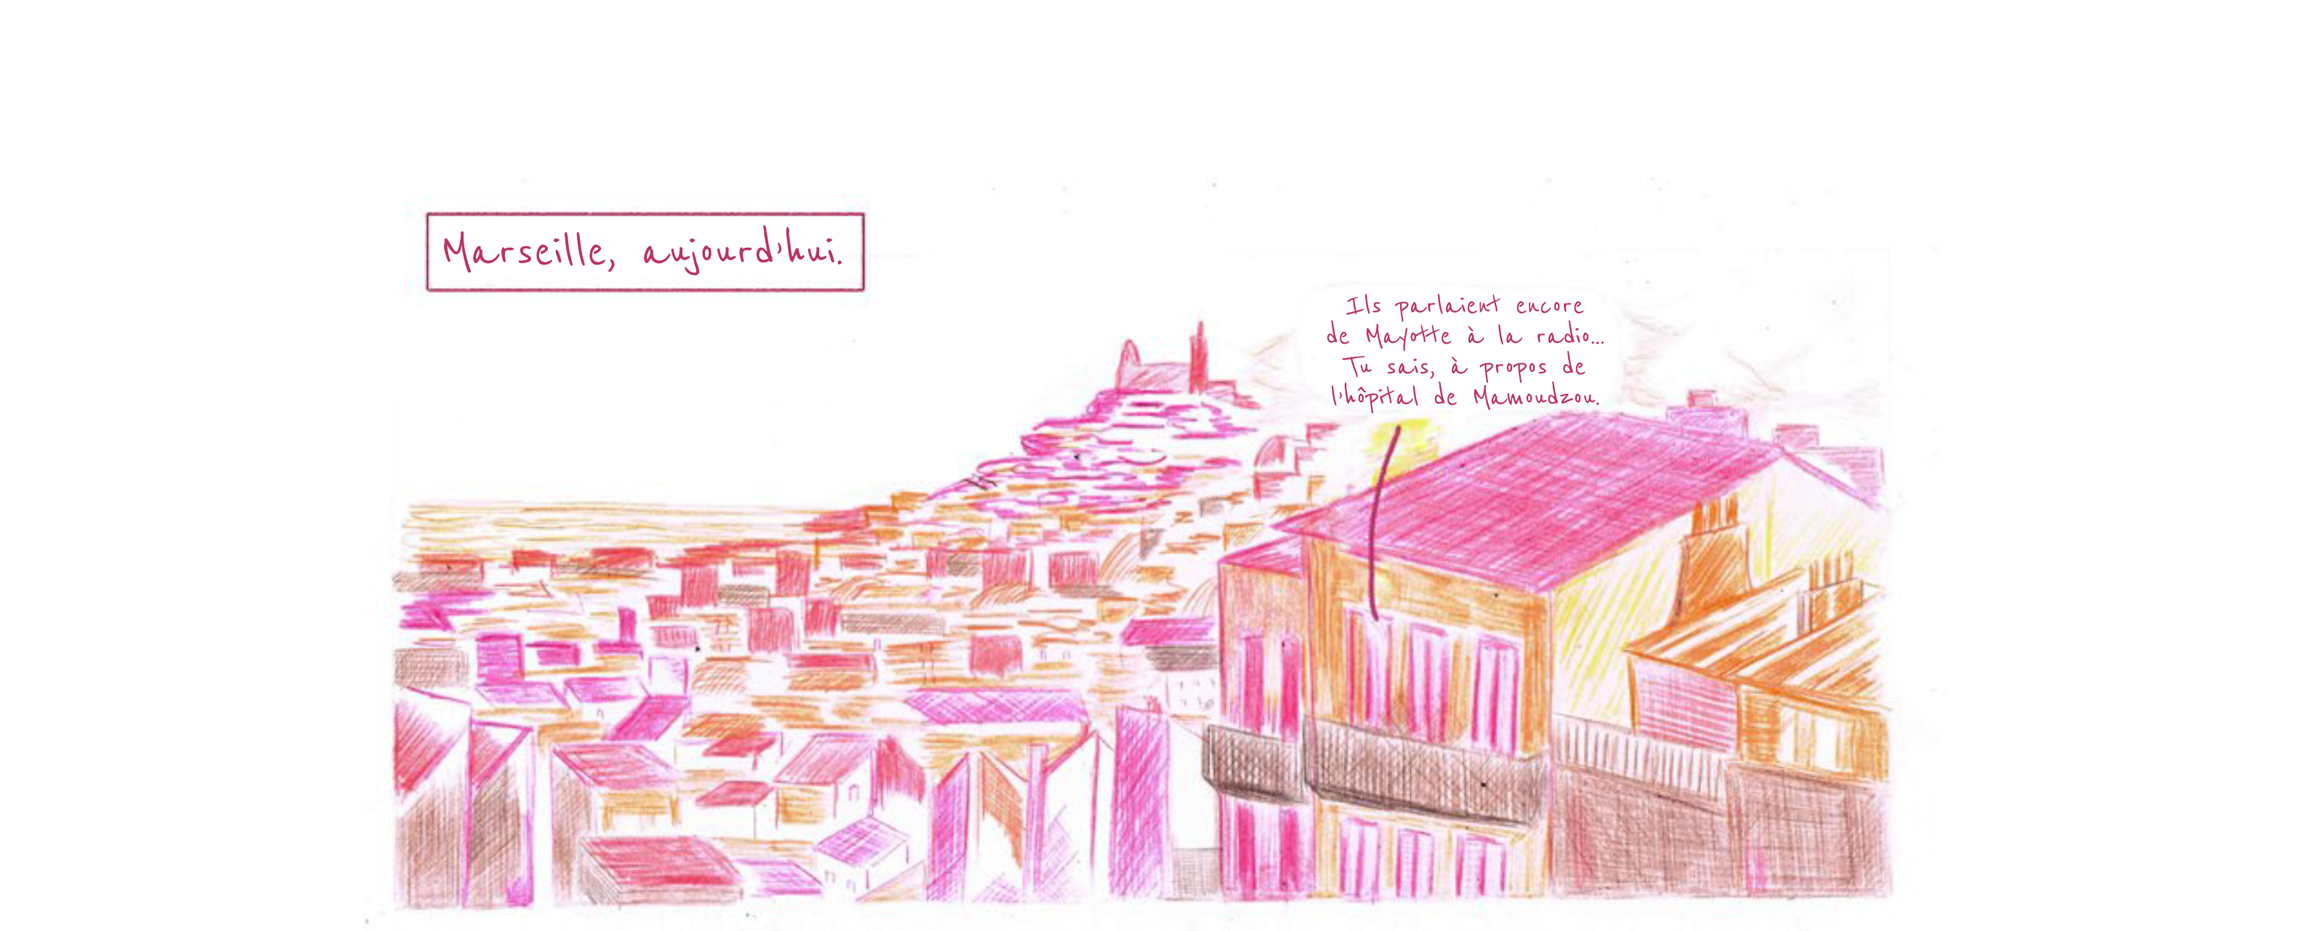 Marseille, aujourd'hui.
Ils parlaient encore
de Mayotte à la radio...
Tu sais, à propos de
l'hôpital de Mamoudzou.